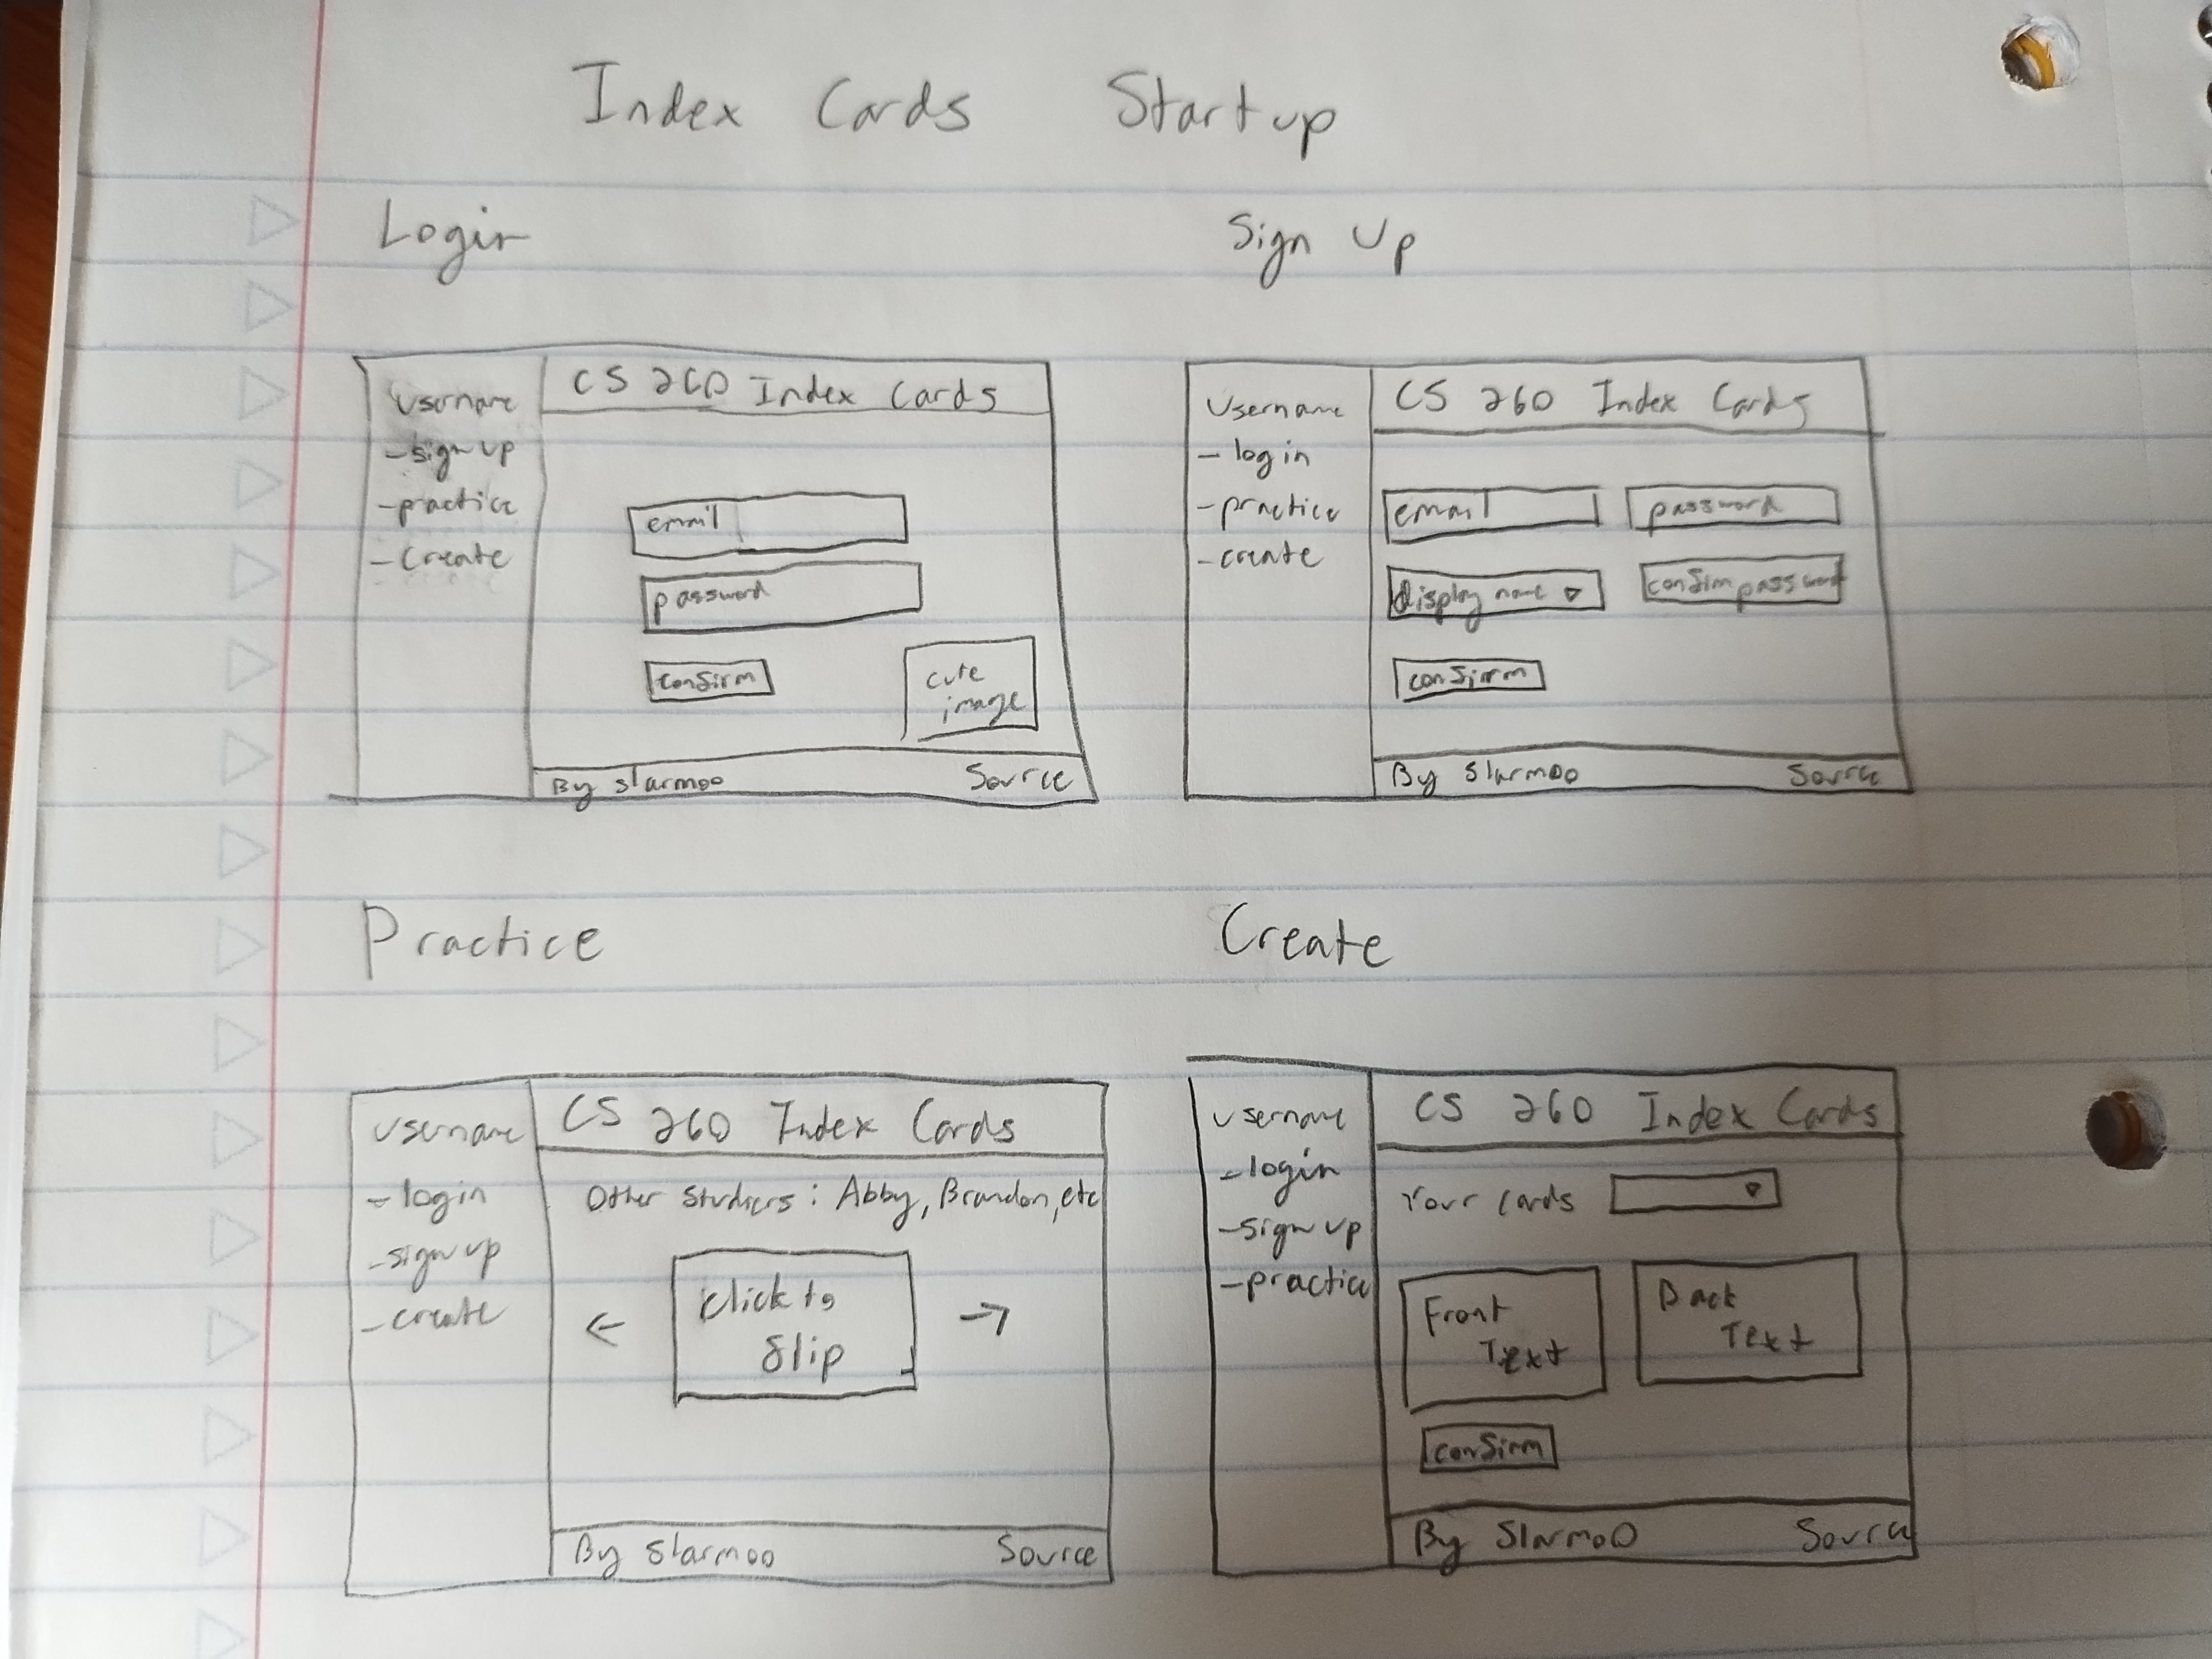 Index Cards Startup
Login
Username
- sign up
- practice
- Create
CS 260 Index Cards
email
password
confirm
cute
image
By slarmoo
Source
Sign Up
Username
- login
- practice
- create
CS 260 Index Cards
email
password
display name
confirm password
confirm
By Slarmoo
Source
Practice
Username
- login
- sign up
- create
CS 260 Index Cards
Other Studiers: Abby, Brandon, etc
←
Click to
flip
→
By Slarmoo
Source
Create
Username
- login
- sign up
- practice
CS 260 Index Cards
Your Cards
Front
Text
Back
Text
confirm
By Slarmoo
Source